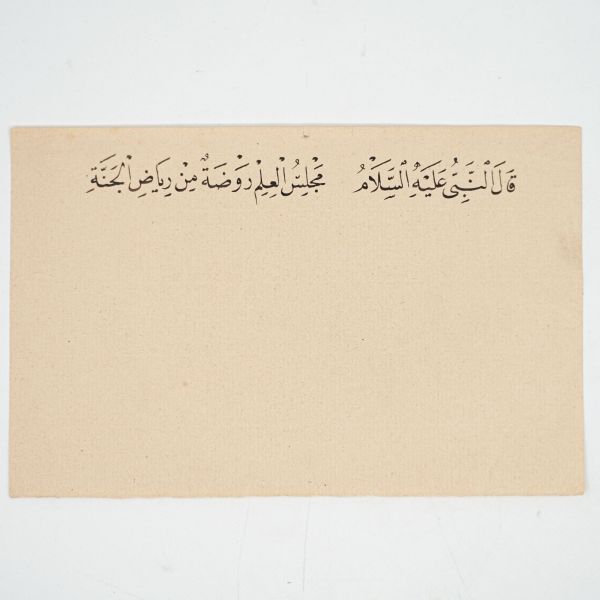 قَالَ النَّبِىُّ عَلَيْهِ السَّلَامُ مَجْلِسُ الْعِلْمِ رَوْضَةٌ مِنْ رِيَاضِ الْجَنَّةِ